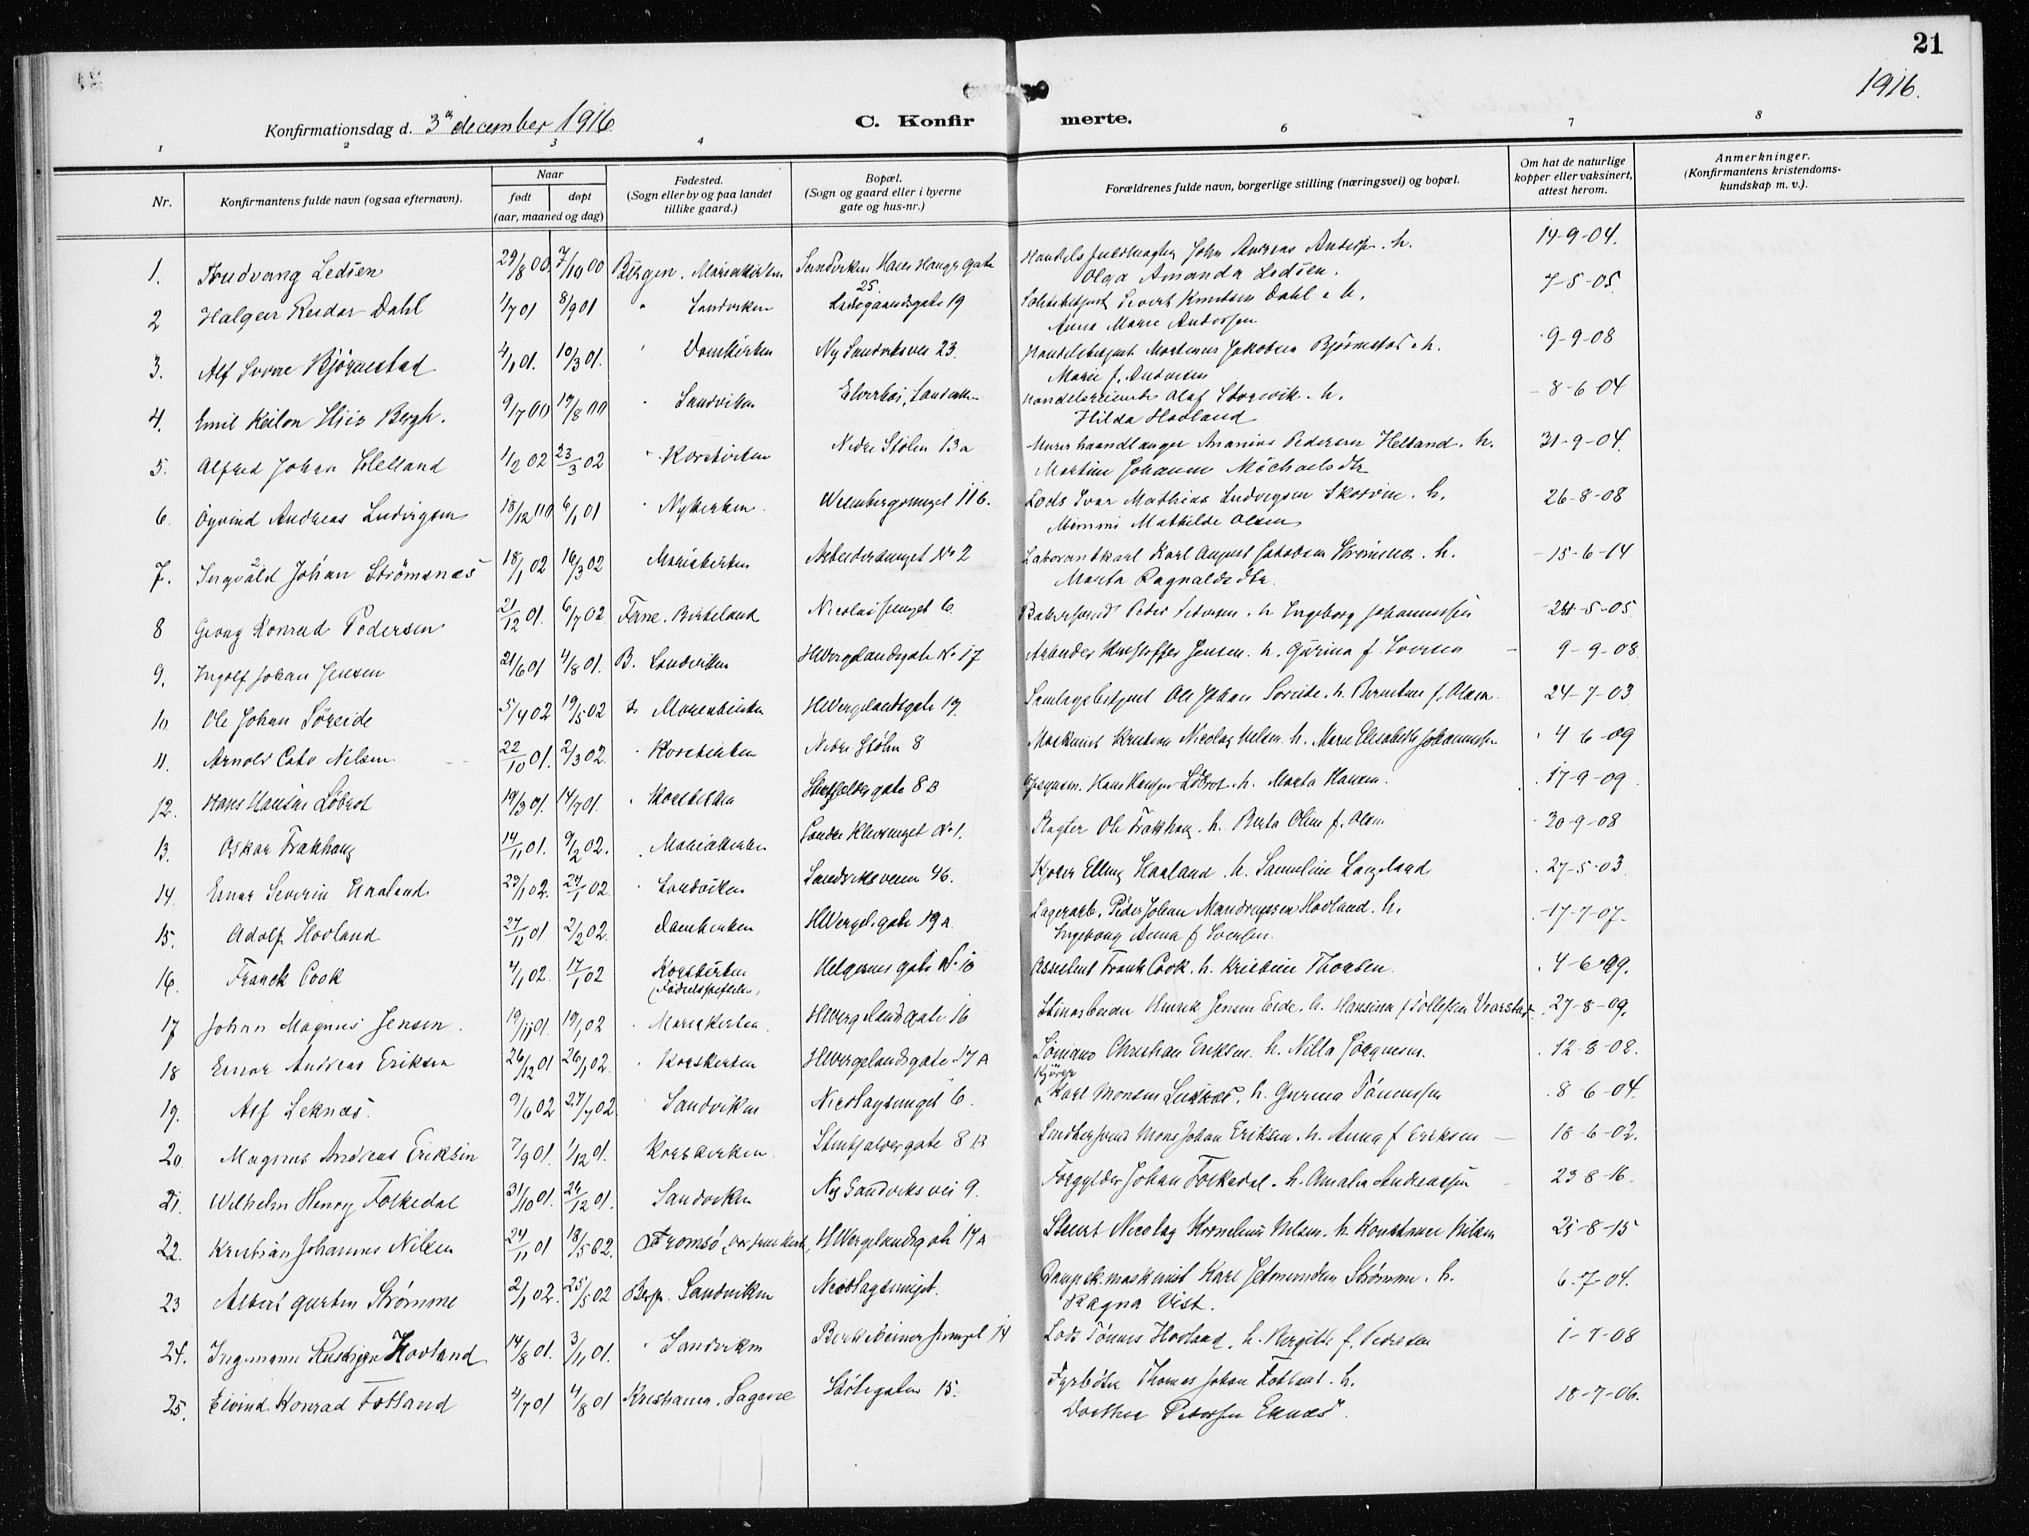 21
1916.
Konfirmationsdag d. 3 december 1916
C. Konfirmerte.
1 2 3 4 6 7 8
Nr.
Konfirmantens fulde navn (ogsaa efternavn).
Naar
født døpt
(aar, maaned og dag)
Fødested.
(Sogn eller by og paa landet
tillike gaard.)
Bopæl.
(Sogn og gaard eller i byerne
gate og hus-nr.)
Forældrenes fulde navn, borgerlige stilling (næringsvei) og bopæl.
Om hat de naturlige
kopper eller vaksinert,
attest herom.
Anmerkninger.
(Konfirmantens kristendoms-
kundskap m. v.).
1. Trudvang Ledsen 29/8 00 7/10 00 Bergen. Mariakirken Sandviken Hans Hauges gate 25. John Andreas h. 14-9-04.
Olga Amanda Ledsen.
2 Halgeir Reidar Dahl 1/7 01 8/9 01 " Sandviken Ladegaardsgate 19 Sivert Knutsen Dahl h. 7-5-05
Anna Marie Andersen
3. Alf Sverre Bjørnestad 4/1 01. 10/3 01. " Domkirken Ny Sandviksvei 23. Jakobsen Bjørnestad h. 9-9-08
Marie f.
4. Emil Bergh. 9/7 00 19/8 00 " Sandviken Olaf Storevik h. 8-6-04
Hilda Hovland
5. Alfred Johan Helland 1/2 02 23/3 02 " Korskirken Nedre Stølen 13a Murerhaandlanger Ananias Pedersen Helland. h. 31-9-04.
Martine Johanne Michaelsdtr
6. Øyvind Andreas Ludvigsen 18/12 00 6/1 01 " Nykirken. Wesenbergsmuget 11b. Lods Ivar Mathias Ludvigsen h. 26-8-08
Mimmi Mathilde Olsen
7. Ingvald Johan Strømsnes 18/1 02 16/3 02 Mariakirken Arbeidersmuget No 2 Karl August Jakobsen Strømsnes. h. 15-6-14
Marta Ragnaldsdtr.
8 Georg Konrad Pedersen 21/12 01. 6/7 02 Fane. Birkeland Nicolaismuget 6 Bakersvend Peder Pedersen. h Ingeborg Johannessen 24-5-05
9. Ingolf Johan Jensen 21/6 01 4/8 01. B. Sandviken HWergelandsgate No 17 Arbeider Kristoffer Jensen. h. Gurina f. Iversen 9-9-08
10. Ole Johan Søreide 5/4 02 19/5 02 Mariakirken HWergelandsgate 19. Ole Johan Soreide. h. Berntine f. Olsen. 24-7-03
11. Arnold Cato Nilsen 22/10 01. 2/3 02. " Korskirken Nedre Støln 8 Maskinist Kristian Nicolay Nilsen. h. Marie Elisabeth Johannessen 4 6-09
12. Hans Hansen Løbrot 19/3 01. 14/7 01. " Korskirken gate 8B Hans Hansen Løbrot. h. Marta Hansen. 17-9-09.
13. Oskar Frakhaug 14/11 01. 9/2 02. " Mariakirken Søndre No 1. Røgter Ole Frakhaug. h. Berta Oline f. Olsen 30-9-08
14. Einar Severin Haaland 23/1 02. 24/1 02 " Sandviken Sandviksveien 46. Elling Haaland. h. Samuline Langeland 27-5-03.
15. Adolf Hovland 27/11 01 2/2 02. Domkirken HWergl.gate 19a. Lagerarb. Peder Johan Mandrupsen Hovland. h. 17-7-07.
Ingeborg Anna f Iversen.
16. Franck Cook 4/1 02. 17/1 02 Korskirken (Fødselsstiftelsen) Helgesens gate No 10 Assistent Frank Cook. h. Kristine Thorsen. 4-6-09.
17 Johan Magnus Jensen. 19/11 01. 19/1 02 " Mariakirken. HWergelandgate 16 Henrik Jensen Eide. h. Hansina f Tollefsen 27-8-09.
18 Einar Andreas Eriksen 26/12 01 26/1 02. " Korskirken HWergelandsgate 17A Christian Eriksen. h. Nilla Jørgensen. 12-8-02.
19. Alf Leknes. 9/6 02 27/7 02. Sandviken Nicolaysmuget 6. Kjører Karl Monsen Leknes. h. Gurina Tønnessen 8-6-04.
20 Magnus Andreas Eriksen 7/9 01. 1/12 01. Korskirken. gate 8B Mons Johan Eriksen. h. Anna f Eriksen 18-6-02.
21. Wilhelm Henry Folkedal 31/10 01. 26/12 01. Sandviken Ny Sandviks vei 9. Forgylder Johan Folkedal. h. Amalia Andreassen 23 8-16.
22. Kristian Johannes Nilsen 24/11 01 18/5 02. Tromsø, HWergelandsgate 17a Stuert Nicolay Kornelius Nilsen. h. Konstance Nilsen 25-8-15
23 Albert Gustav Strømme 2/1 02. 25/5 02 Berg. Sandviken Nicolaysmuget. maskinist Karl Strømme. h. 6-7-04.
Ragna Vist.
24. Ingemann Hovland 14/8 01. 3/11 01. " Sandviken 14 Lods Tønnes Hovland. h. Bergitte f. Pedersen 1-7-08
25. Eivind Konrad Fotland 4/7 01 4/8 01 Kristiania, Sagene Støtegaten 15. Fyrbøter Thomas Johan Fotland. h. 18-7-06.
Dorthea Pedersen Eknes.